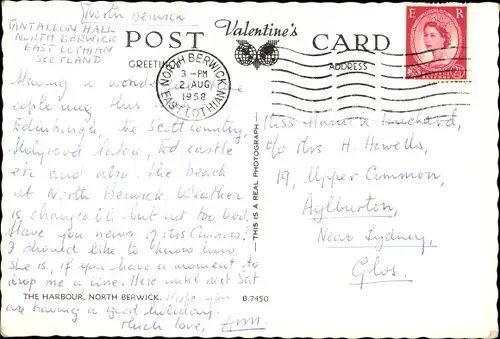 North Berwick
TANTALLON HALL
NORTH BERWICK
EAST LOTHIAN
SCOTLAND
Valentine's
POST CARD
GREETING
ADDRESS
NORTH BERWICK
3 - PM
2 AUG
1958
EAST LOTHIAN
E R
Having a
exploring this
Edinburgh, the Scott country,
Holyrood Palace, Ed castle
etc and also the beach
at North Berwick. Weather
is changeable but not too bad.
Have you news of Miss
I should like to know how
she is, if you have a moment to
drop me a line. Here until next Sat
THE HARBOUR, NORTH BERWICK.
Hope you
are having a good holiday.
Much love,
B.7450
—THIS IS A REAL PHOTOGRAPH—
Miss
c/o Mrs H. Howells,
19, Upper Common,
Aylburton,
Near Lydney,
Glos.